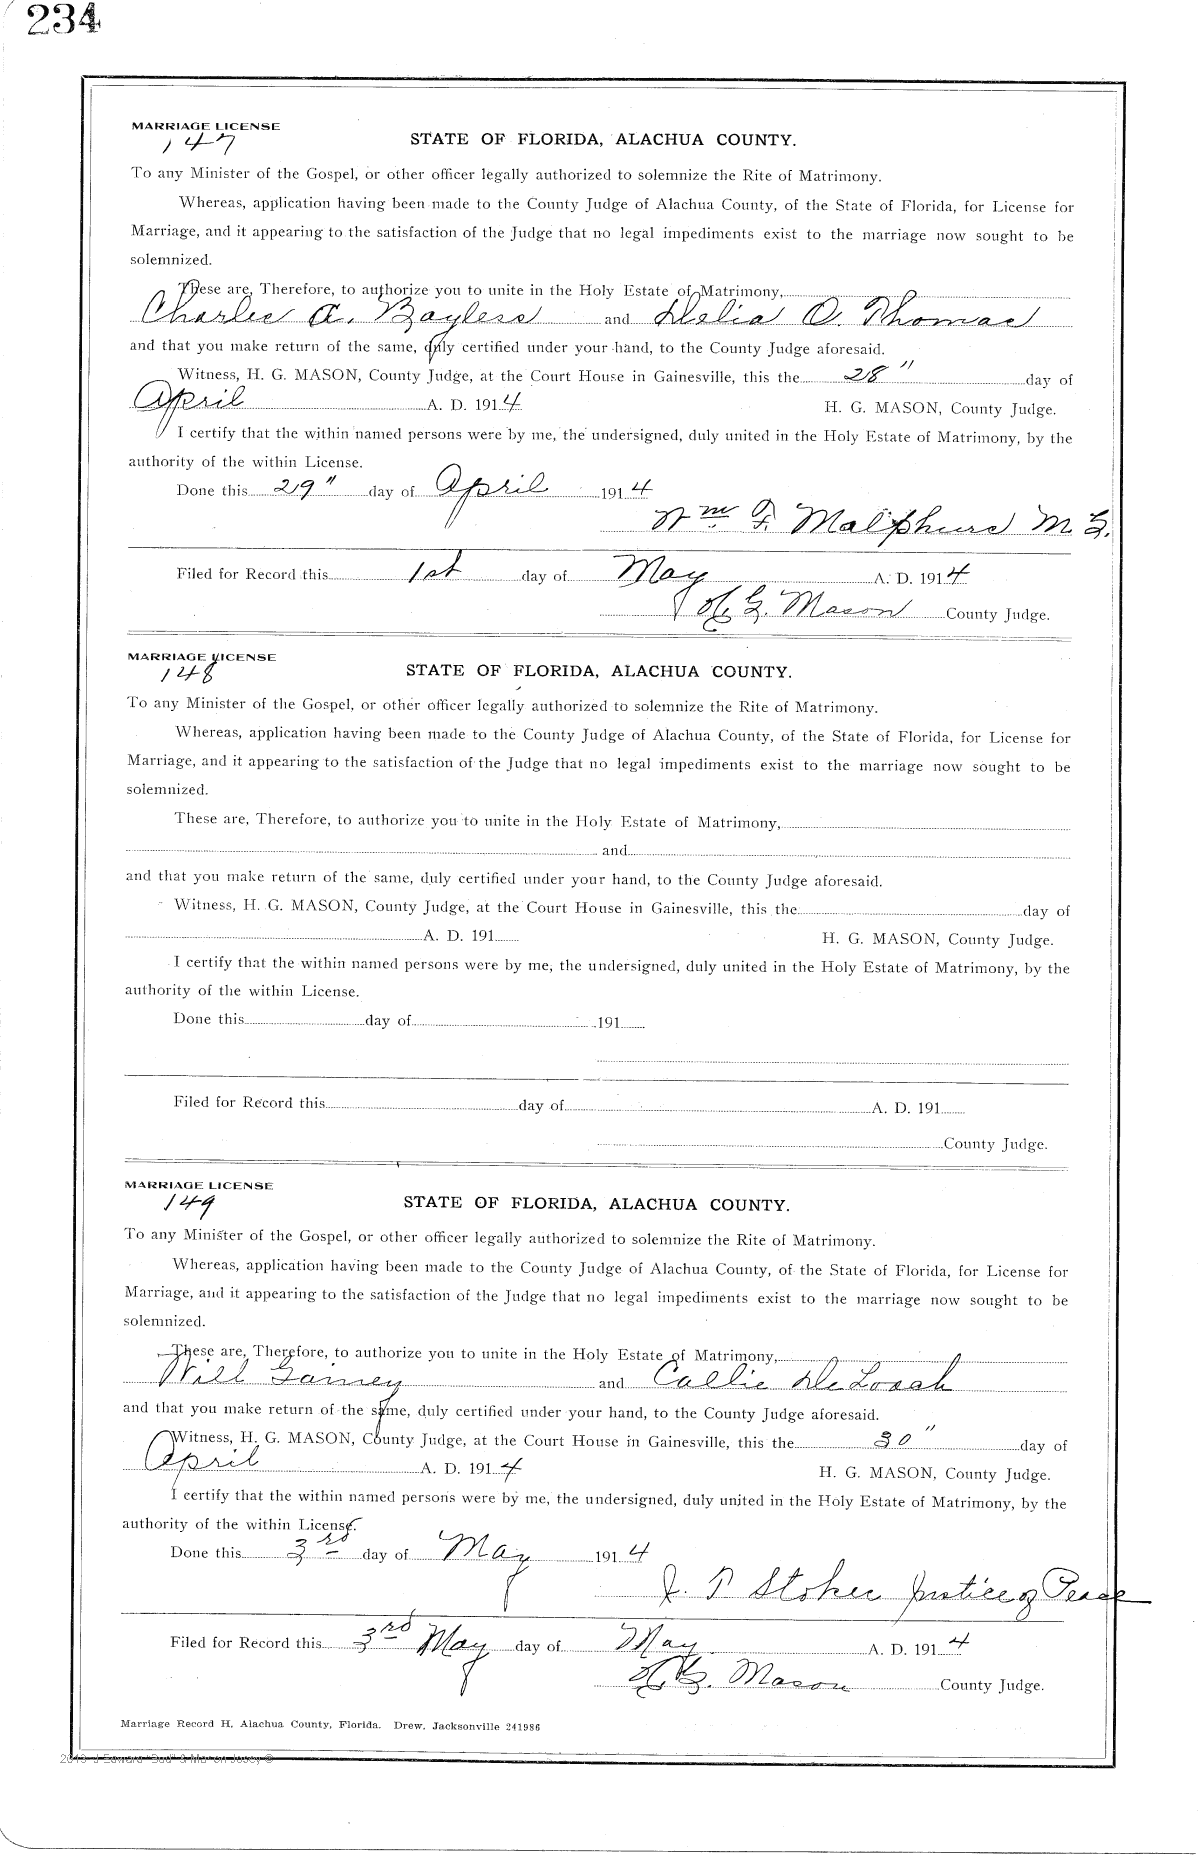 234
MARRIAGE LICENSE
147
STATE OF FLORIDA, ALACHUA COUNTY.
To any Minister of the Gospel, or other officer legally authorized to solemnize the Rite of Matrimony.
Whereas, application having been made to the County Judge of Alachua County, of the State of Florida, for License for
Marriage, and it appearing to the satisfaction of the Judge that no legal impediments exist to the marriage now sought to be
solemnized.
These are, Therefore, to authorize you to unite in the Holy Estate of Matrimony,
Charles A. Bayless and Delia O. Thomas
and that you make return of the same, duly certified under your hand, to the County Judge aforesaid.
Witness, H. G. MASON, County Judge, at the Court House in Gainesville, this the 28" day of
April A. D. 1914 H. G. MASON, County Judge.
I certify that the within named persons were by me, the undersigned, duly united in the Holy Estate of Matrimony, by the
authority of the within License.
Done this 29" day of April 1914
Wm F. Malphurs M. G.
Filed for Record this 1st day of May A. D. 1914
H. G. Mason County Judge.
MARRIAGE LICENSE
148
STATE OF FLORIDA, ALACHUA COUNTY.
To any Minister of the Gospel, or other officer legally authorized to solemnize the Rite of Matrimony.
Whereas, application having been made to the County Judge of Alachua County, of the State of Florida, for License for
Marriage, and it appearing to the satisfaction of the Judge that no legal impediments exist to the marriage now sought to be
solemnized.
These are, Therefore, to authorize you to unite in the Holy Estate of Matrimony,
and
and that you make return of the same, duly certified under your hand, to the County Judge aforesaid.
Witness, H. G. MASON, County Judge, at the Court House in Gainesville, this the day of
A. D. 191 H. G. MASON, County Judge.
I certify that the within named persons were by me, the undersigned, duly united in the Holy Estate of Matrimony, by the
authority of the within License.
Done this day of 191
Filed for Record this day of A. D. 191
County Judge.
MARRIAGE LICENSE
149
STATE OF FLORIDA, ALACHUA COUNTY.
To any Minister of the Gospel, or other officer legally authorized to solemnize the Rite of Matrimony.
Whereas, application having been made to the County Judge of Alachua County, of the State of Florida, for License for
Marriage, and it appearing to the satisfaction of the Judge that no legal impediments exist to the marriage now sought to be
solemnized.
These are, Therefore, to authorize you to unite in the Holy Estate of Matrimony,
Will Gainey and Callie DeLoach
and that you make return of the same, duly certified under your hand, to the County Judge aforesaid.
Witness, H. G. MASON, County Judge, at the Court House in Gainesville, this the 30" day of
April A. D. 1914 H. G. MASON, County Judge.
I certify that the within named persons were by me, the undersigned, duly united in the Holy Estate of Matrimony, by the
authority of the within License.
Done this 3rd day of May 1914
J. P Stokes Justice of Peace
Filed for Record this 3rd May day of May A. D. 1914
H. G. Mason County Judge.
Marriage Record H, Alachua County, Florida. Drew, Jacksonville 241986